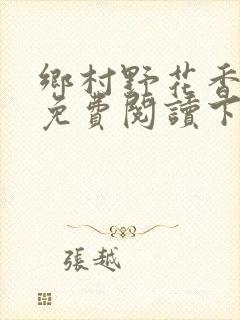 鄉村野花香
免費閱讀下
張越